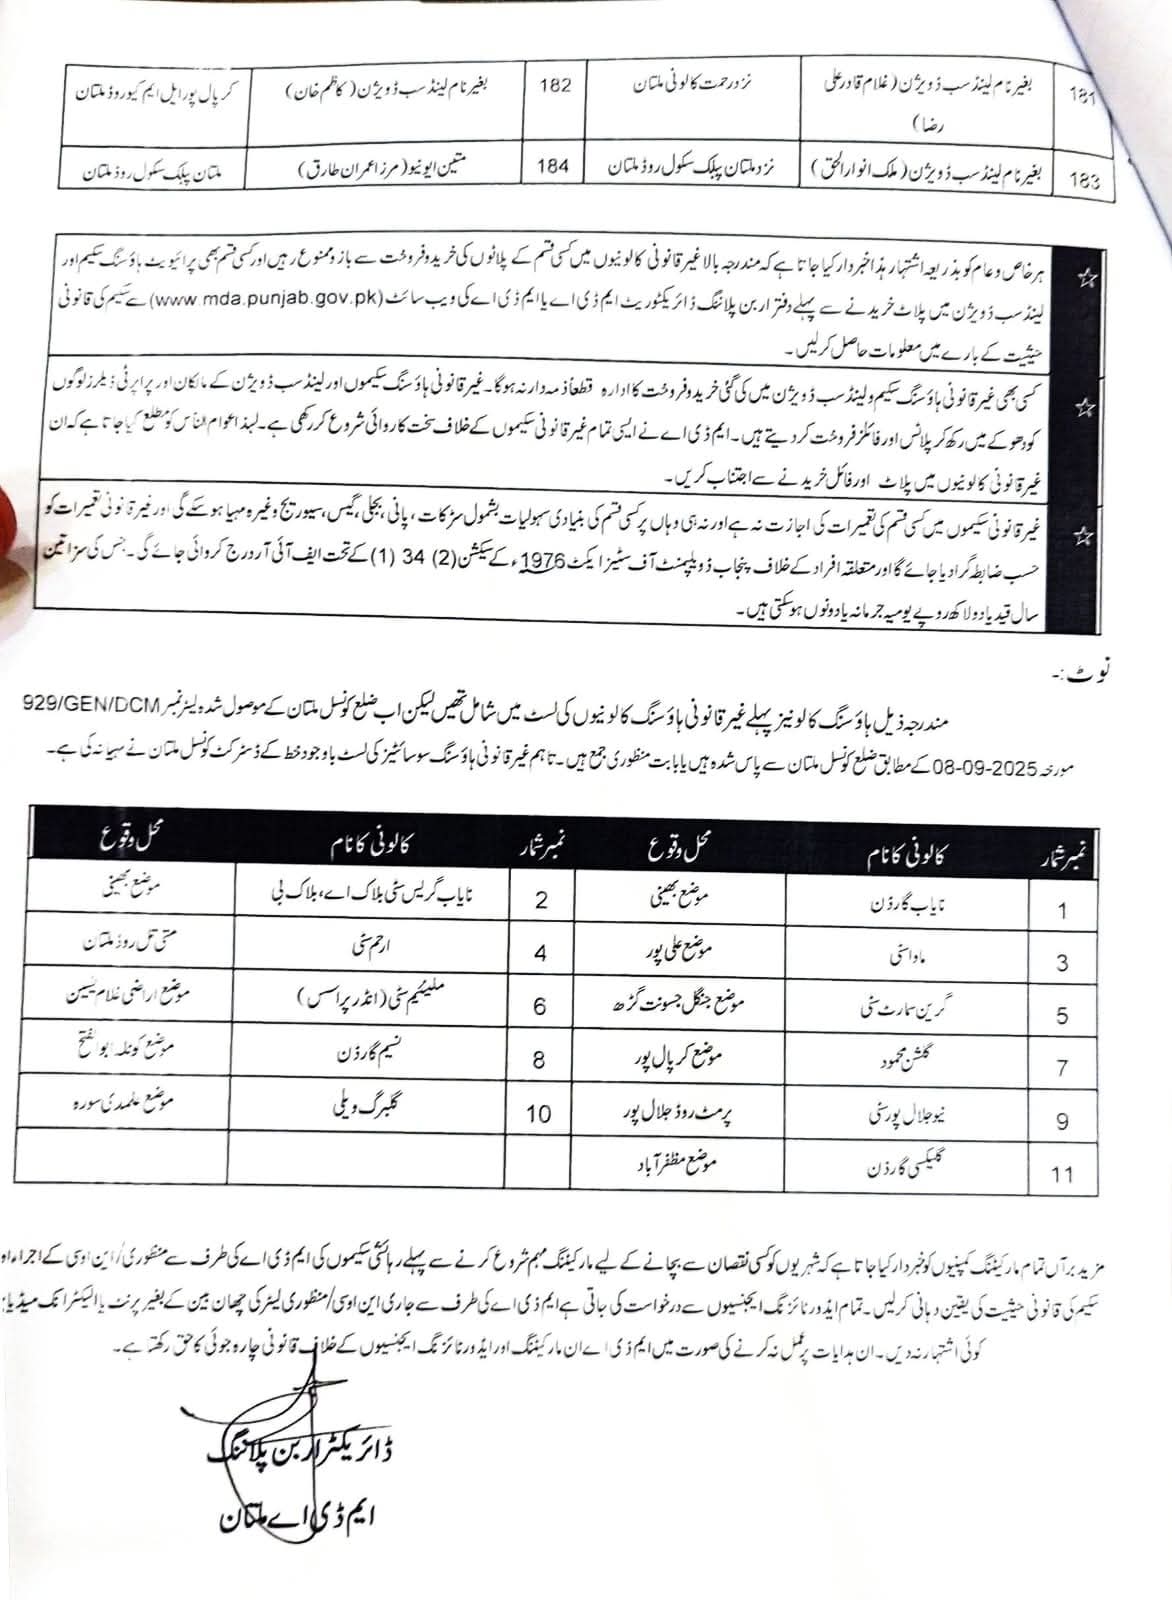 181 بغیر نام لینڈ سب ڈویژن (غلام قادر علی رضا) نزد رحمت کالونی ملتان 182 بغیر نام لینڈ سب ڈویژن (کاظم خان) کرپال پور ایل ایم کیو روڈ ملتان
183 بغیر نام لینڈ سب ڈویژن (ملک انوار الحق) نزد ملتان پبلک سکول روڈ ملتان 184 متین ایونیو (مرزا عمران طارق) ملتان پبلک سکول روڈ ملتان
☆ ہر خاص و عام کو بذریعہ اشتہار ہذا خبردار کیا جاتا ہے کہ مندرجہ بالا غیر قانونی کالونیوں میں کسی قسم کے پلاٹوں کی خرید و فروخت سے باز و ممنوع رہیں اور کسی قسم بھی پرائیویٹ ہاؤسنگ سکیم اور
لینڈ سب ڈویژن میں پلاٹ خریدنے سے پہلے دفتر اربن پلاننگ ڈائریکٹوریٹ ایم ڈی اے یا ایم ڈی اے کی ویب سائٹ (www.mda.punjab.gov.pk) سے سکیم کی قانونی
حیثیت کے بارے میں معلومات حاصل کر لیں۔
☆ کسی بھی غیر قانونی ہاؤسنگ سکیم و لینڈ سب ڈویژن میں کی گئی خرید و فروخت کا ادارہ قطعاً ذمہ دار نہ ہوگا۔ غیر قانونی ہاؤسنگ سکیموں اور لینڈ سب ڈویژن کے مالکان اور پراپرٹی ڈیلرز لوگوں
کو دھوکے میں رکھ کر پلاٹس اور فائلز فروخت کر دیتے ہیں۔ ایم ڈی اے نے ایسی تمام غیر قانونی سکیموں کے خلاف سخت کاروائی شروع کر رکھی ہے۔ لہذا عوام الناس کو مطلع کیا جاتا ہے کہ ان
غیر قانونی کالونیوں میں پلاٹ اور فائل خریدنے سے اجتناب کریں۔
☆ غیر قانونی سکیموں میں کسی قسم کی تعمیرات کی اجازت نہ ہے اور نہ ہی وہاں پر کسی قسم کی بنیادی سہولیات بشمول سڑکات، پانی، بجلی، گیس، سیوریج وغیرہ مہیا ہو سکے گی اور غیر قانونی تعمیرات کو
حسب ضابطہ گرا دیا جائے گا اور متعلقہ افراد کے خلاف پنجاب ڈویلپمنٹ آف سٹیز ایکٹ 1976ء کے سیکشن (2) 34 (1) کے تحت ایف آئی آر درج کروائی جائے گی۔ جس کی سزا تین
سال قید یا دو لاکھ روپے یومیہ جرمانہ یا دونوں ہو سکتی ہیں۔
نوٹ:۔
مندرجہ ذیل ہاؤسنگ کالونیز پہلے غیر قانونی ہاؤسنگ کالونیوں کی لسٹ میں شامل تھیں لیکن اب ضلع کونسل ملتان کے موصول شدہ لیٹر نمبر 929/GEN/DCM
مورخہ 08-09-2025 کے مطابق ضلع کونسل ملتان سے پاس شدہ ہیں یا بابت منظوری جمع ہیں۔ تاہم غیر قانونی ہاؤسنگ سوسائٹیز کی لسٹ باوجود خط کے ڈسٹرکٹ کونسل ملتان نے مہیا نہ کی ہے۔
نمبر شمار کالونی کا نام محل وقوع نمبر شمار کالونی کا نام محل وقوع
1 نایاب گارڈن موضع بھینی 2 نایاب گریس سٹی بلاک اے، بلاک بی موضع بھینی
3 ماوا سٹی موضع علی پور 4 ارحم سٹی متی تل روڈ ملتان
5 گرین سمارٹ سٹی موضع جنگل جسونت گڑھ 6 ملینیم سٹی (انڈر پراسس) موضع اراضی غلام یٰسین
7 گلشن محمود موضع کرپال پور 8 نسیم گارڈن موضع کوٹلہ ابوالفتح
9 نیو جلال پور سٹی پرمٹ روڈ جلال پور 10 گلبرگ ویلی موضع علمدی سورہ
11 گلیکسی گارڈن موضع مظفر آباد
مزید برآں تمام مارکیٹنگ کمپنیوں کو خبردار کیا جاتا ہے کہ شہریوں کو کسی نقصان سے بچانے کے لیے مارکیٹنگ مہم شروع کرنے سے پہلے رہائشی سکیموں کی ایم ڈی اے کی طرف سے منظوری/این او سی کے اجراء او
سکیم کی قانونی حیثیت کی یقین دہانی کر لیں۔ تمام ایڈورٹائزنگ ایجنسیوں سے درخواست کی جاتی ہے ایم ڈی اے کی طرف سے جاری این او سی/منظوری لیٹر کی چھان بین کے بغیر پرنٹ یا الیکٹرانک میڈیا
کوئی اشتہار نہ دیں۔ ان ہدایات پر عمل نہ کرنے کی صورت میں ایم ڈی اے ان مارکیٹنگ اور ایڈورٹائزنگ ایجنسیوں کے خلاف قانونی چارہ جوئی کا حق رکھتا ہے۔
ڈائریکٹر اربن پلاننگ
ایم ڈی اے ملتان